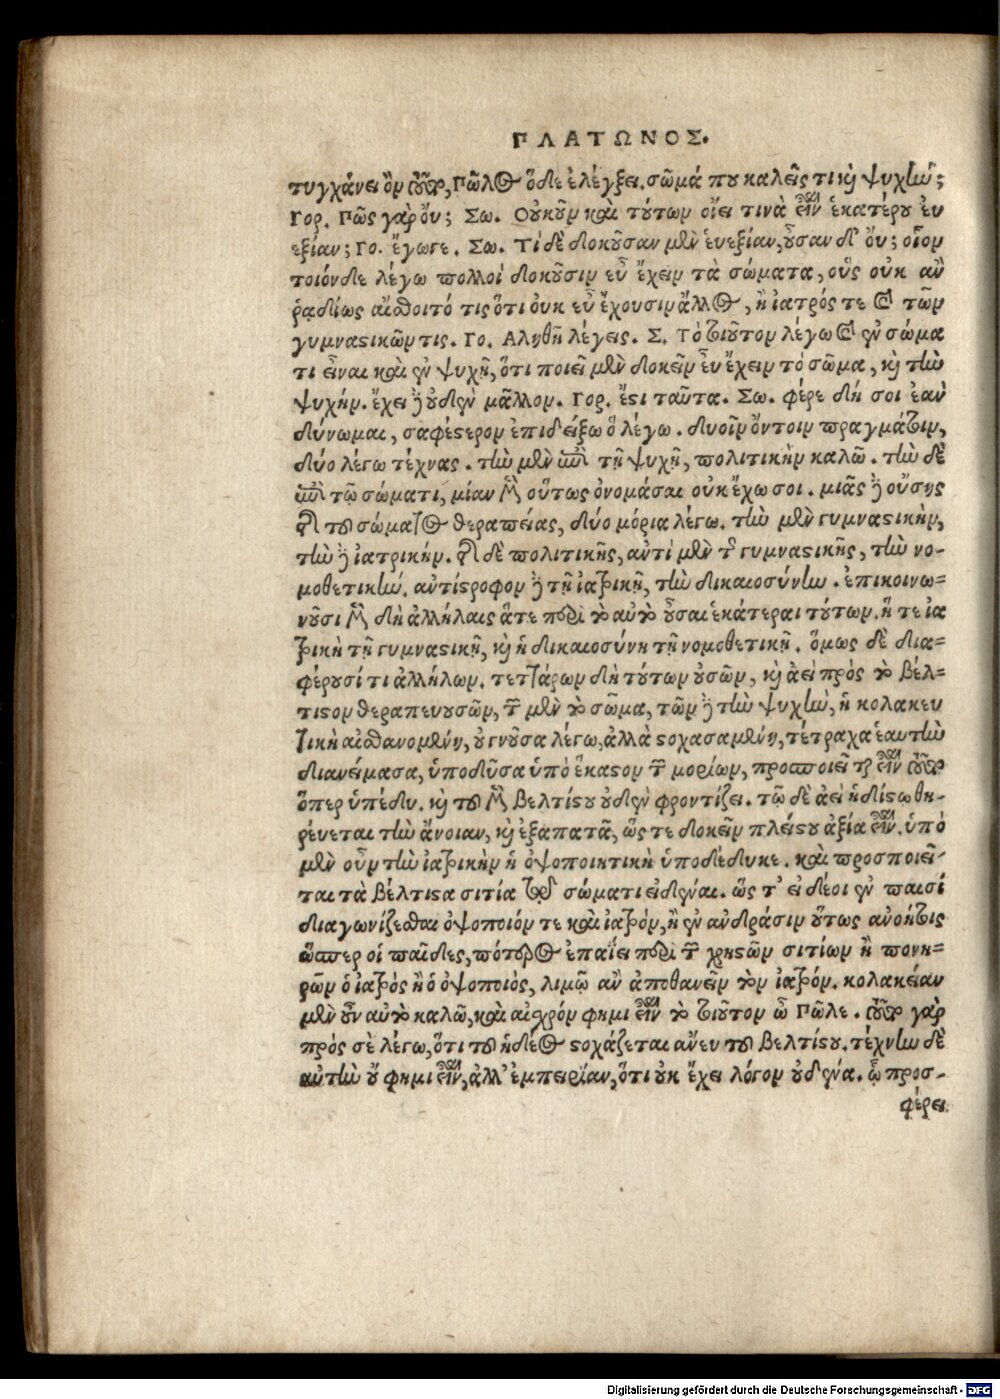 ΠΛΑΤΩΝΟΣ.
τυγχάνει ὂν τοῦτο, Πῶλος ὅδε ἐλέγξει. σῶμά που καλεῖς τι καὶ ψυχήν;
Γορ. Πῶς γὰρ οὔ; Σω. Οὐκοῦν καὶ τούτων οἴει τινὰ εἶναι ἑκατέρου εὐ
εξίαν; Γο. ἔγωγε. Σω. Τί δὲ δοκοῦσαν μὲν ἐυεξίαν, οὖσαν δ' οὔ; οἷον
τοιόνδε λέγω πολλοί δοκοῦσιν εὖ ἔχειν τὰ σώματα, οὓς οὐκ ἂν
ῥᾳδίως αἴσθοιτό τις ὅτι ὀυκ εὖ ἔχουσιν ἄλλος, ἢ ἰατρός τε καὶ τῶν
γυμναστικῶν τις. Γο. Αληθῆ λέγεις. Σ. Τὸ τοιοῦτον λέγω καὶ ἐν σώμα
τι εἶναι καὶ ἐν ψυχῇ, ὅτι ποιεῖ μὲν δοκεῖν εὖ ἔχειν τὸ σῶμα, καὶ τὴν
ψυχήν. ἔχει δὲ οὐδὲν μᾶλλον. Γορ. ἔστι ταῦτα. Σω. φέρε δή σοι ἐαν
δύνωμαι, σαφέστερον ἐπιδείξω ὃ λέγω. δυοῖν ὄντοιν πραγμάτοιν,
δύο λέγω τέχνας. τὴν μὲν ἐπὶ τῇ ψυχῇ, πολιτικὴν καλῶ. τὴν δὲ
ἐπὶ τῷ σώματι, μίαν μὲν οὕτως ὀνομάσαι οὐκ ἔχω σοι. μιᾶς δὲ οὔσης
τῆς τοῦ σώματος θεραπείας, δύο μόρια λέγω. τὴν μὲν γυμναστικὴν,
τὴν δὲ ἰατρικήν. τῆς δὲ πολιτικῆς, αντί μὲν τῆς γυμναστικῆς, τὴν νο-
μοθετικήν. αντίστροφον δὲ τῇ ἰατρικῇ, τὴν δικαιοσύνην. ἐπικοινω=
νοῦσι μὲν δὴ ἀλλήλαις ἅτε περὶ τὸ αὐτὸ οὖσαι ἑκάτεραι τούτων. ἥ τε ἰα
τρικὴ τῇ γυμναστικῇ, καὶ ἡ δικαιοσύνη τῇ νομοθετικῇ. ὅμως δὲ δια=
φέρουσί τι ἀλλήλων. τεττάρων δὴ τούτων οὐσῶν, καὶ ἀεὶ πρὸς τὸ βέλ=
τιστον θεραπευουσῶν, τῶν μὲν τὸ σῶμα, τῶν δὲ τὴν ψυχὴν, ἡ κολακευ
τικὴ αἰσθανομένη, οὐ γνοῦσα λέγω, ἀλλὰ στοχασαμένη, τέτραχα ἑαυτὴν
διανείμασα, ὑποδῦσα ὑπὸ ἕκαστον τῶν μορίων, προσποιεῖται εἶναι τοῦτο
ὅπερ ὑπέδυ. καὶ τοῦ μὲν βελτίστου οὐδὲν φροντίζει. τῷ δὲ ἀεὶ ἡδίστῳ θη-
ρένεται τὴν ἄνοιαν, καὶ ἐξαπατᾷ, ὥς τε δοκεῖν πλείστου ἀξία εἶναι. ὑπὸ
μὲν οὖν τὴν ἰατρικὴν ἡ ὀψοποιητικὴ ὑποδέδυκε. καὶ προσποιεῖ-
ται τὰ βέλτιστα σιτία τῷ σώματι εἰδέναι. ὥς τ' εἰ δέοι ἐν παισί
διαγωνίζεσθαι ὀψοποιόν τε καὶ ἰατρόν, ἢ ἐν ανδράσιν οὕτως ανοήτοις
ὥσπερ οἱ παῖδες, πότερος ἐπαΐει περὶ τῶν χρηστῶν σιτίων ἢ πονη=
ρῶν ὁ ἰατρὸς ἢ ὁ ὀψοποιὸς, λιμῷ αν ἀποθανεῖν τὸν ἰατρόν. κολακείαν
μὲν οὖν αὐτὸ καλῶ, καὶ αἰσχρόν φημι εἶναι τὸ τοιοῦτον ὦ Πῶλε. τοῦτο γὰρ
πρός σὲ λέγω, ὅτι τοῦ ἡδέος στοχάζεται ἄνευ τοῦ βελτίστου. τέχνην δὲ
αὐτὴν οὔ φημι εἶναι, ἀλλ' ἐμπειρίαν, ὅτι οὐκ ἔχει λόγον οὐδένα. ᾧ προσ-
φέρει
Digitalisierung gefördert durch die Deutsche Forschungsgemeinschaft - DFG